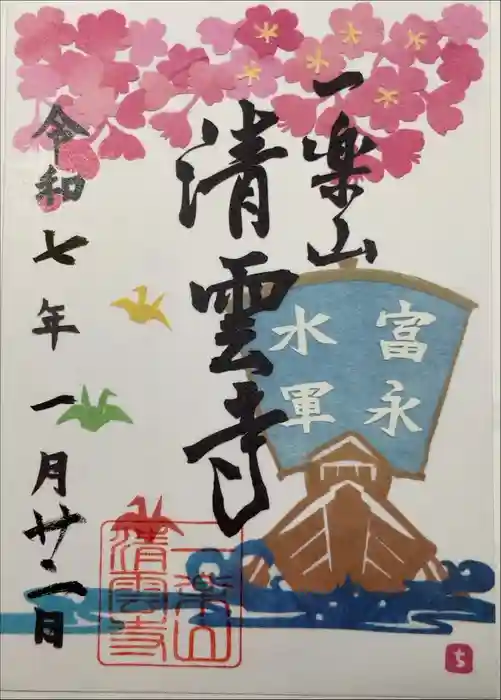 一楽山
富永
水軍
清雲寺
令和七年一月廿二日
一楽山
清雲寺
ち